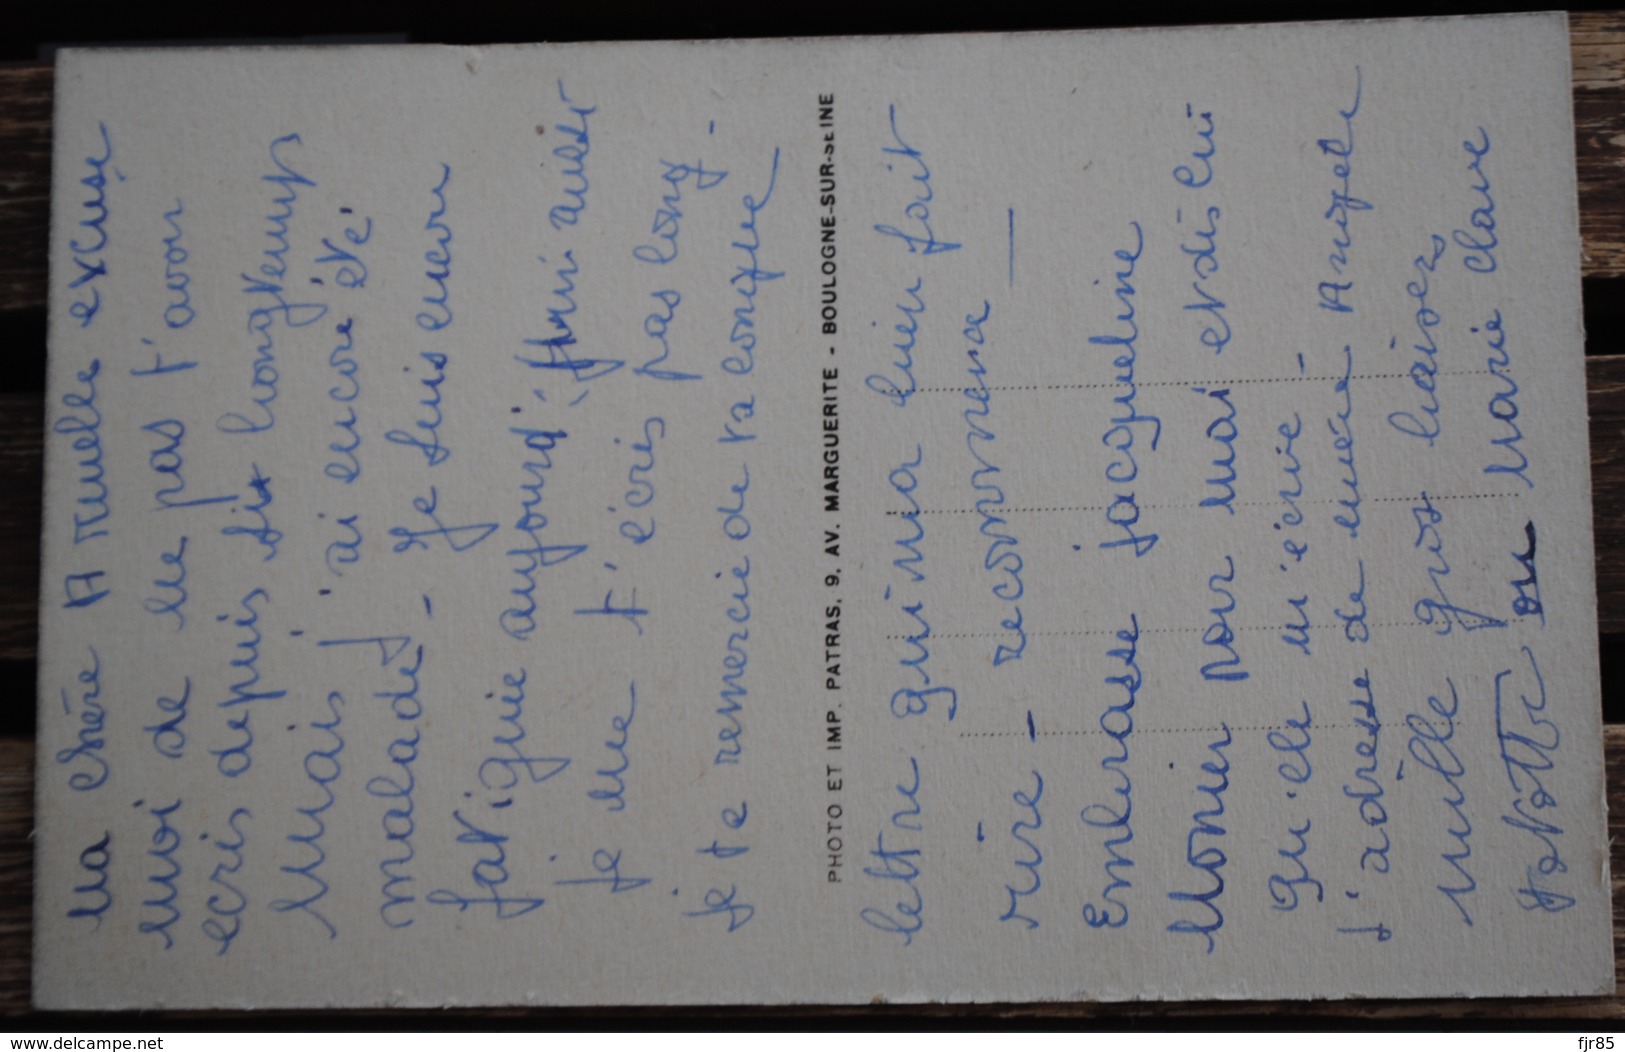 ma chère Armelle excuse
moi de ne pas t'avoir
ecris depuis si longtemps
Mais j'ai encore été
malade - Je suis encor
fatiguie aujourd' aussi
je ne t'écris pas long
je te remercie de ta longue
PHOTO ET IMP. PATRAS, 9, AV. MARGUERITE - BOULOGNE-SUR-SEINE
lettre qui m'a bien fait
rire -
Embrasse jacqueline
Monier pour moi et dis lui
qu'ele m'écrive -
l'adresse de mémé Angele
mille gros baisers
Tototte ou Marie claire
www.delcampe.net
fjr85